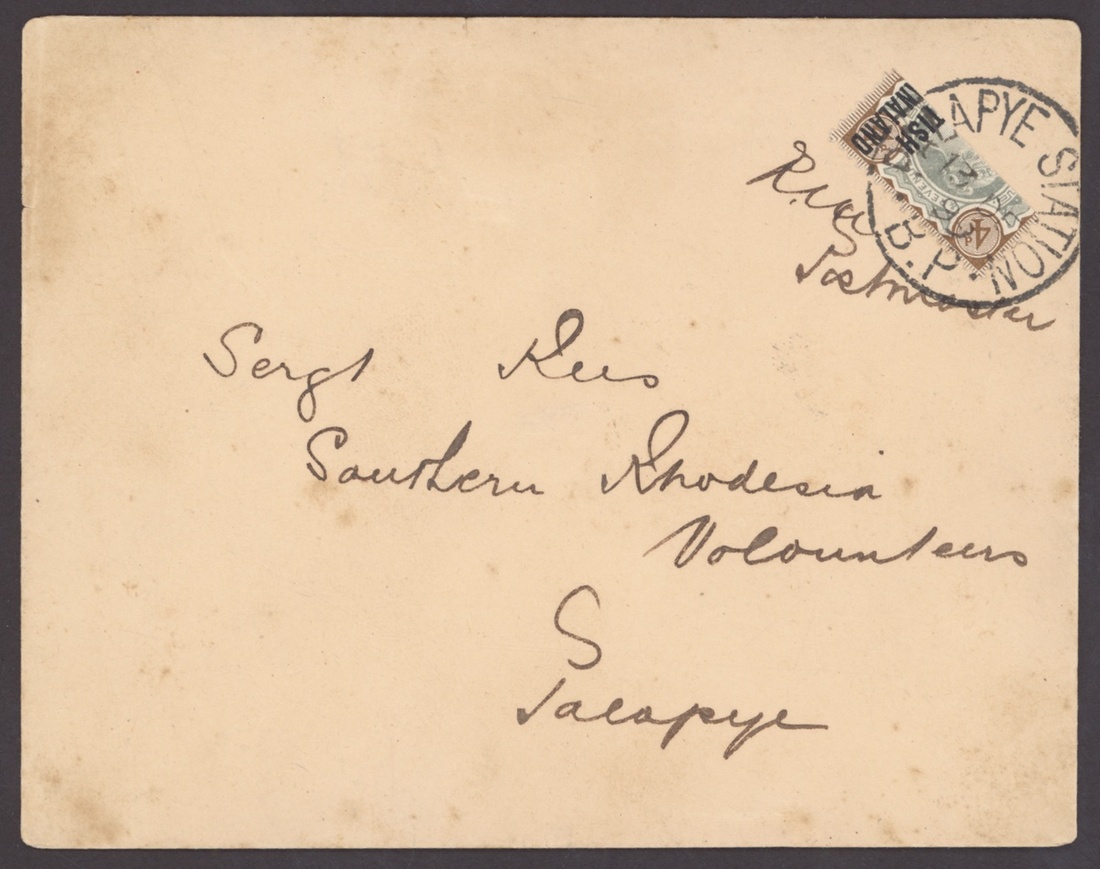 TISH
NALAND
4d
EVEN
PALAPYE STATION
13
99
B.P.
Postmaster
Sergt Rees
Southern Rhodesia
Volounteers
S
Palapye